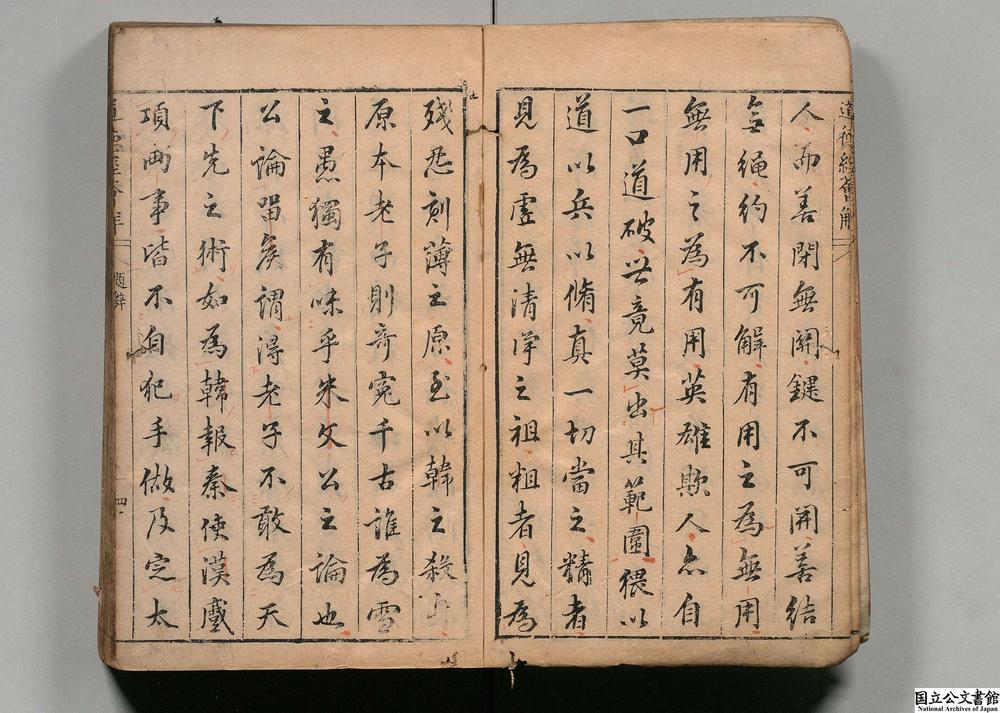 道德經薈解
人而善閉無關鍵不可開善結
無繩約不可解有用之為無用
無用之為有用英雄欺人亦自
一口道破竟莫出其範圍猥以
道以兵以脩真一切當之精者
見為虛無清淨之祖粗者見為
殘忍刻薄之原至以韓之殺
原本老子則奇冤千古誰為雪
之愚獨有味乎朱文公之論也
公論留矦謂淂老子不敢為天
下先之術如為韓報秦使漢
項兩事皆不自犯手做及定太
題辭
四
国立公文書館
National Archives of Japan